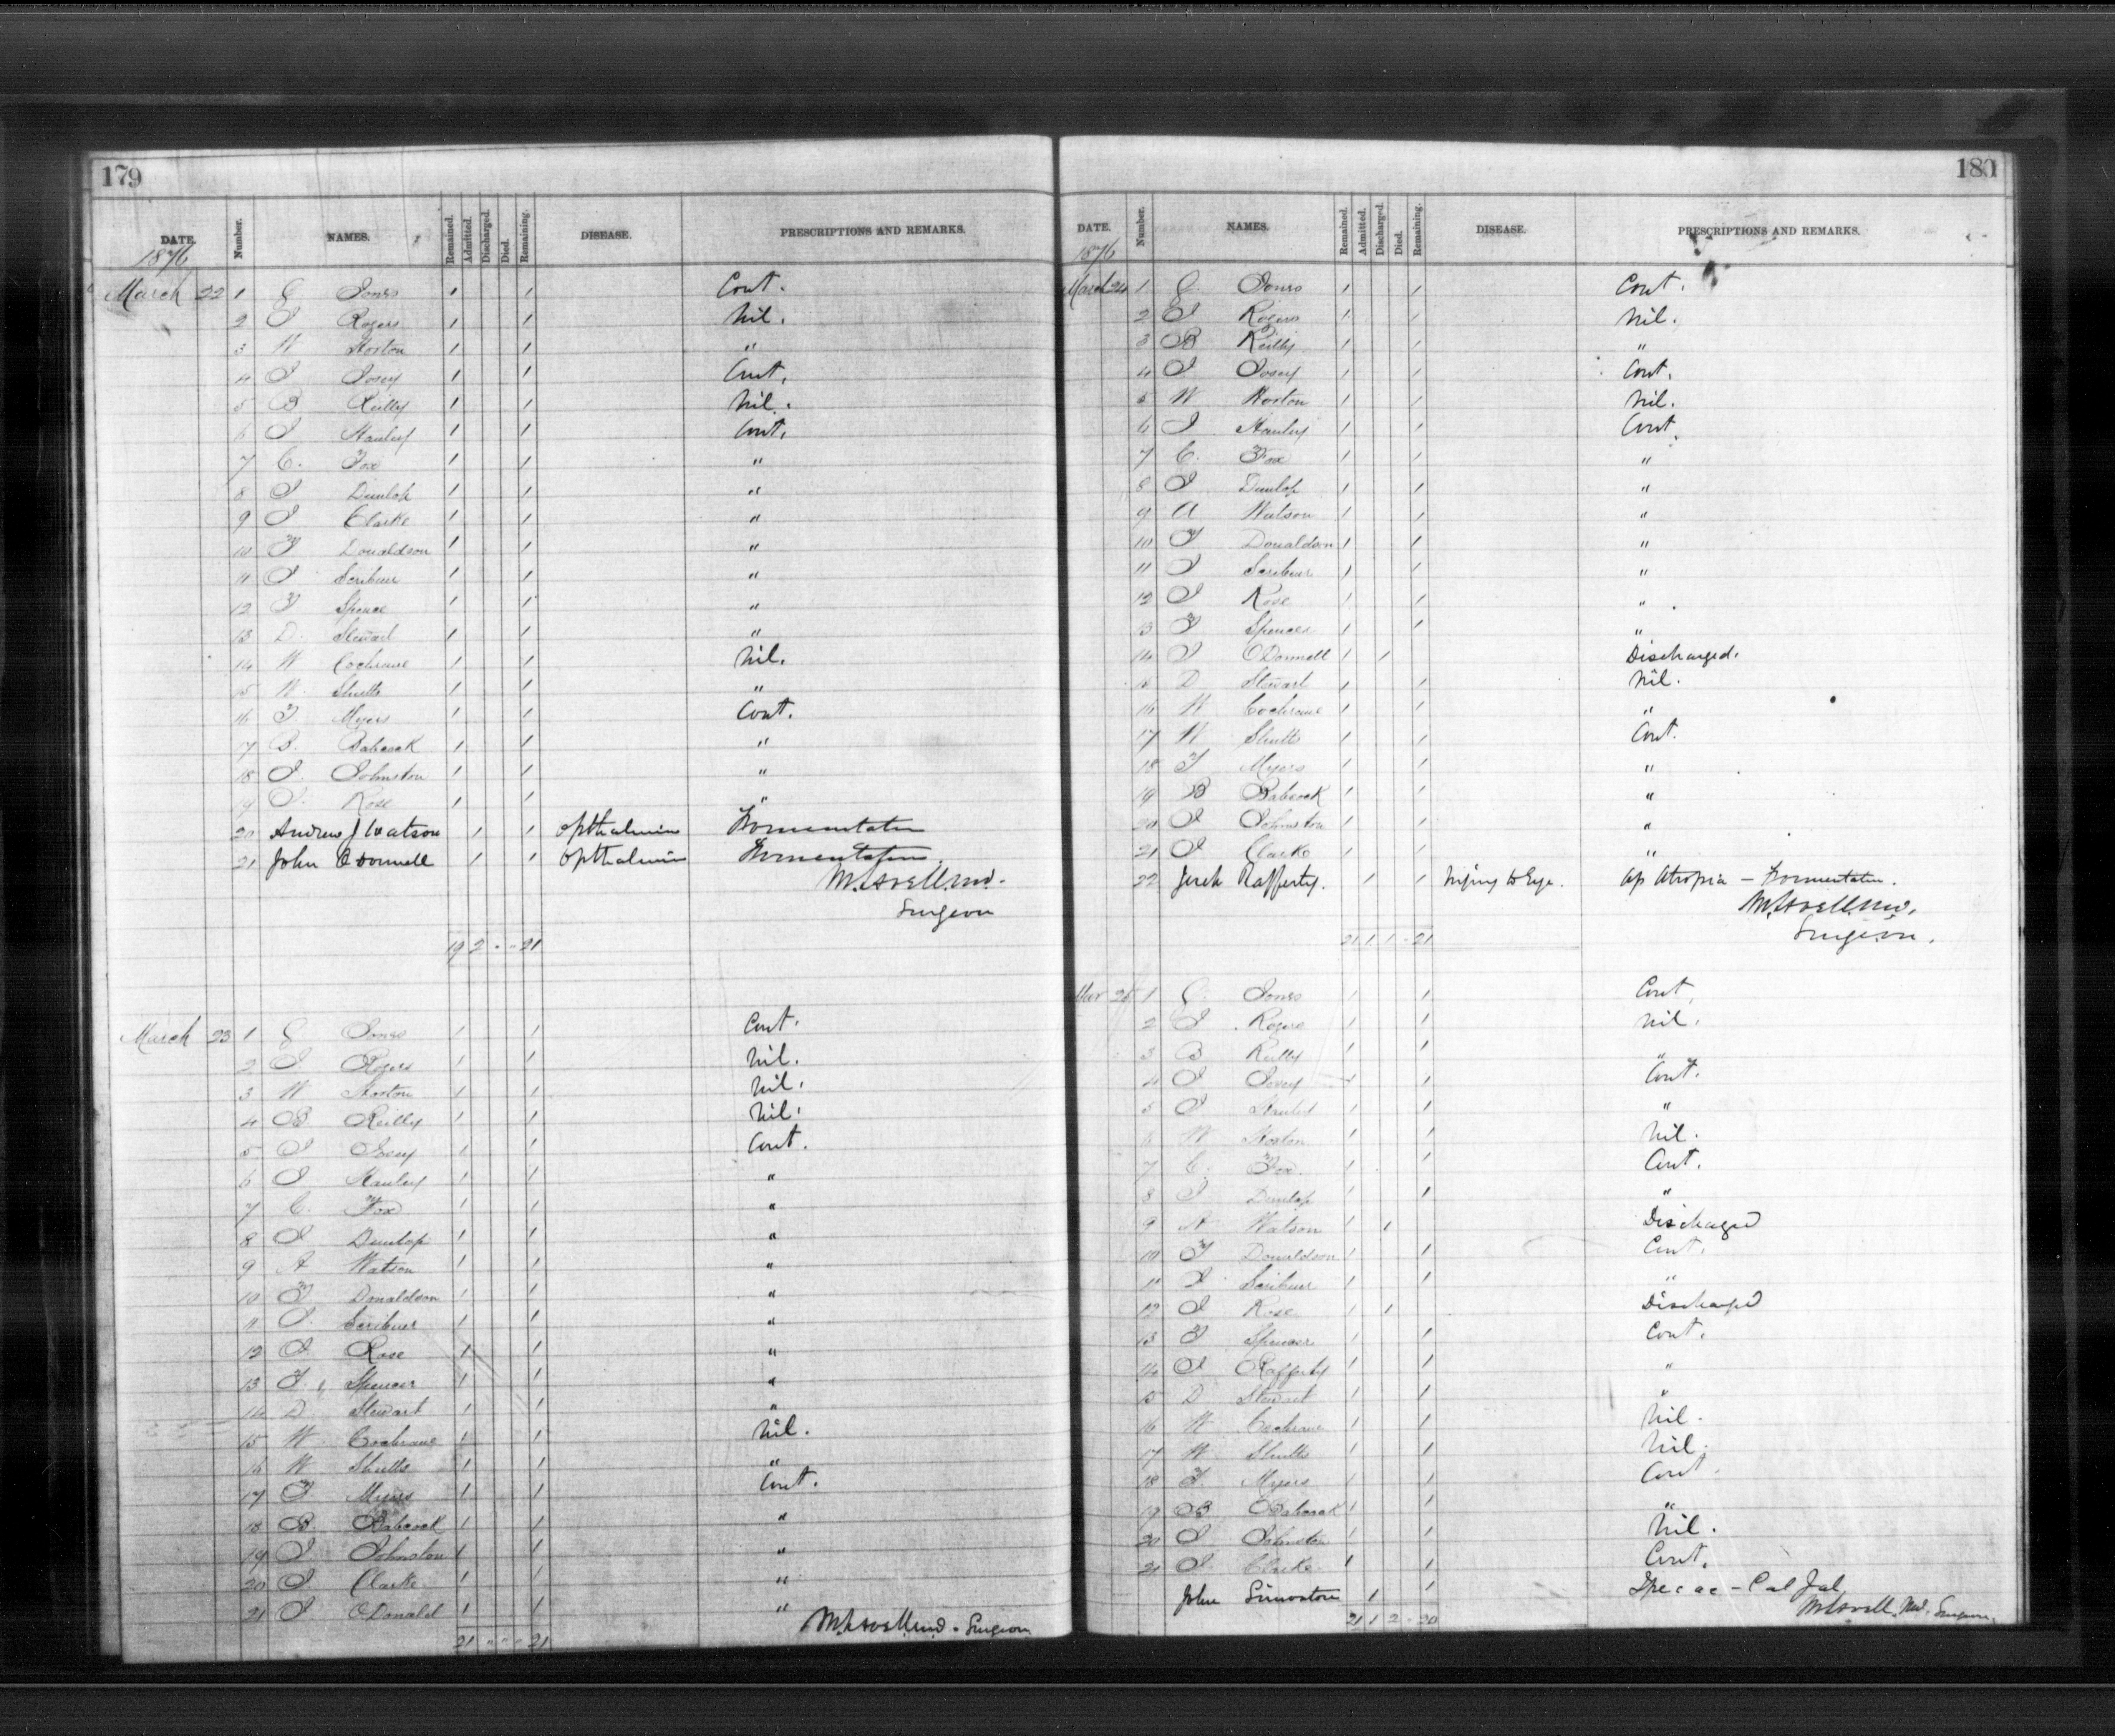 179
DATE. Number. NAMES. Remained. Admitted. Discharged. Died. Remaining. DISEASE. PRESCRIPTIONS AND REMARKS.
1876
March 22 1 Jones 1 1 Cont.
2 J Rogers 1 1 Nil.
3 W Horton 1 1 "
4 J Josey 1 1 Cont.
5 B Reilly 1 1 Nil.
6 J Hanley 1 1 Cont.
7 C. Fox 1 1 "
8 J Dunlop 1 1 "
9 J Clarke 1 1 "
10 F Donaldson 1 1 "
11 J Scribner 1 1 "
12 F Spence 1 1 "
13 D. Stewart 1 1 "
14 W Cochrane 1 1 Nil.
15 W. Shutts 1 1 "
16 F Myers 1 1 Cont.
17 B. Babcock 1 1 "
18 J. Johnston 1 1 "
19 J. Rose 1 1 "
20 Andrew J Watson 1 1 Opthalmia Fomentation
21 John O Donnell 1 1 Opthalmia Fomentation.
Surgeon
19 2 - - 21
March 23 1 Jones 1 1 Cont.
2 J Rogers 1 1 Nil.
3 W Horton 1 1 Nil.
4 B. Reilly 1 1 Nil.
5 J Josey 1 1 Cont.
6 J Hanley 1 1 "
7 C. Fox 1 1 "
8 J Dunlop 1 1 "
9 A Watson 1 1 "
10 F Donaldson 1 1 "
11 J. Scribner 1 1 "
12 J. Rose 1 1 "
13 F. Spencer 1 1 "
14 D. Stewart 1 1 "
15 W. Cochrane 1 1 Nil.
16 W Shutts 1 1 "
17 F Myers 1 1 Cont.
18 B. Babcock 1 1 "
19 J Johnston 1 1 "
20 J. Clarke 1 1 "
21 J ODonald 1 1 "
Surgeon
21 " " " 21
180
DATE. Number. NAMES. Remained. Admitted. Discharged. Died. Remaining. DISEASE. PRESCRIPTIONS AND REMARKS.
1876
March 24 1 Jones 1 1 Cont.
2 J Rogers 1 1 Nil.
3 B Reilly 1 1 "
4 J Josey 1 1 Cont.
5 W Horton 1 1 Nil.
6 J Hanley 1 1 Cont.
7 C. Fox 1 1 "
8 J Dunlop 1 1 "
9 A Watson 1 1 "
10 F Donaldson 1 1 "
11 J Scribner 1 1 "
12 J Rose 1 1 "
13 F Spencer 1 1 "
14 J ODonnell 1 1 Discharged.
15 D Stewart 1 1 Nil.
16 W Cochrane 1 1 "
17 W Shutts 1 1 Cont.
18 F Myers 1 1 "
19 B Babcock 1 1 "
20 J Johnston 1 1 "
21 J Clarke 1 1 "
22 Rafferty. 1 1 Injury to Eye. Ap Atropia - Fomentation.
Surgeon.
21 1 1 - 21
Mar 25 1 Jones 1 1 Cont.
2 J Rogers 1 1 Nil.
3 B Reilly 1 1 "
4 J Josey 1 1 Cont.
5 J Hanley 1 1 "
6 W Horton 1 1 Nil.
7 C. Fox 1 1 Cont.
8 J Dunlop 1 1 "
9 A Watson 1 1 Discharged
10 F Donaldson 1 1 Cont.
11 J Scribner 1 1 "
12 J Rose 1 1 Discharged
13 F Spencer 1 1 Cont.
14 J Rafferty 1 1 "
15 D Stewart 1 1 "
16 W Cochrane 1 1 Nil.
17 W Shutts 1 1 Nil.
18 F. Myers 1 1 Cont.
19 B. Babcock 1 1 "
20 J Johnston 1 1 Nil.
21 J. Clarke 1 1 Cont.
John 1 1 Ipecac - Cal Jal
Surgeon.
21 1 2 - 20